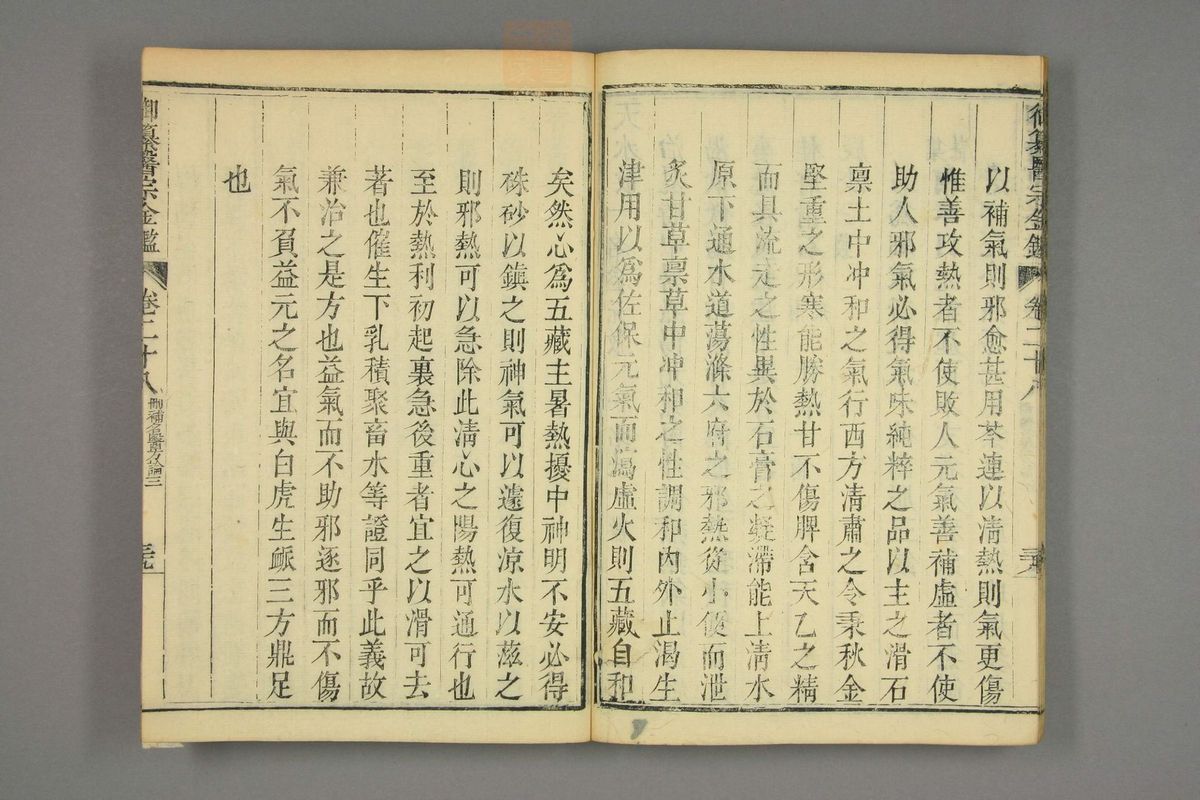 御纂醫宗金鑑 卷二十八
以補氣則邪愈甚用芩連以淸熱則氣更傷
惟善攻熱者不使敗人元氣善補虛者不使
助人邪氣必得氣味純粹之品以主之滑石
禀土中冲和之氣行西方淸肅之令秉秋金
堅重之形寒能勝熱甘不傷脾含天乙之精
而具流走之性異於石膏之凝滯能上淸水
原下通水道蕩滌六府之邪熱從小便而泄
炙甘草禀草中冲和之性調和內外止渴生
津用以爲佐保元氣而瀉虛火則五藏自和
矣然心爲五藏主暑熱擾中神明不安必得
硃砂以鎮之則神氣可以遽復凉水以滋之
則邪熱可以急除此淸心之陽熱可通行也
至於熱利初起裏急後重者宜之以滑可去
著也催生下乳積聚畜水等證同乎此義故
兼治之是方也益氣而不助邪逐邪而不傷
氣不負益元之名宜與白虎生脈三方鼎足
也
御纂醫宗金鑑 卷二十八 刪補名醫方論三